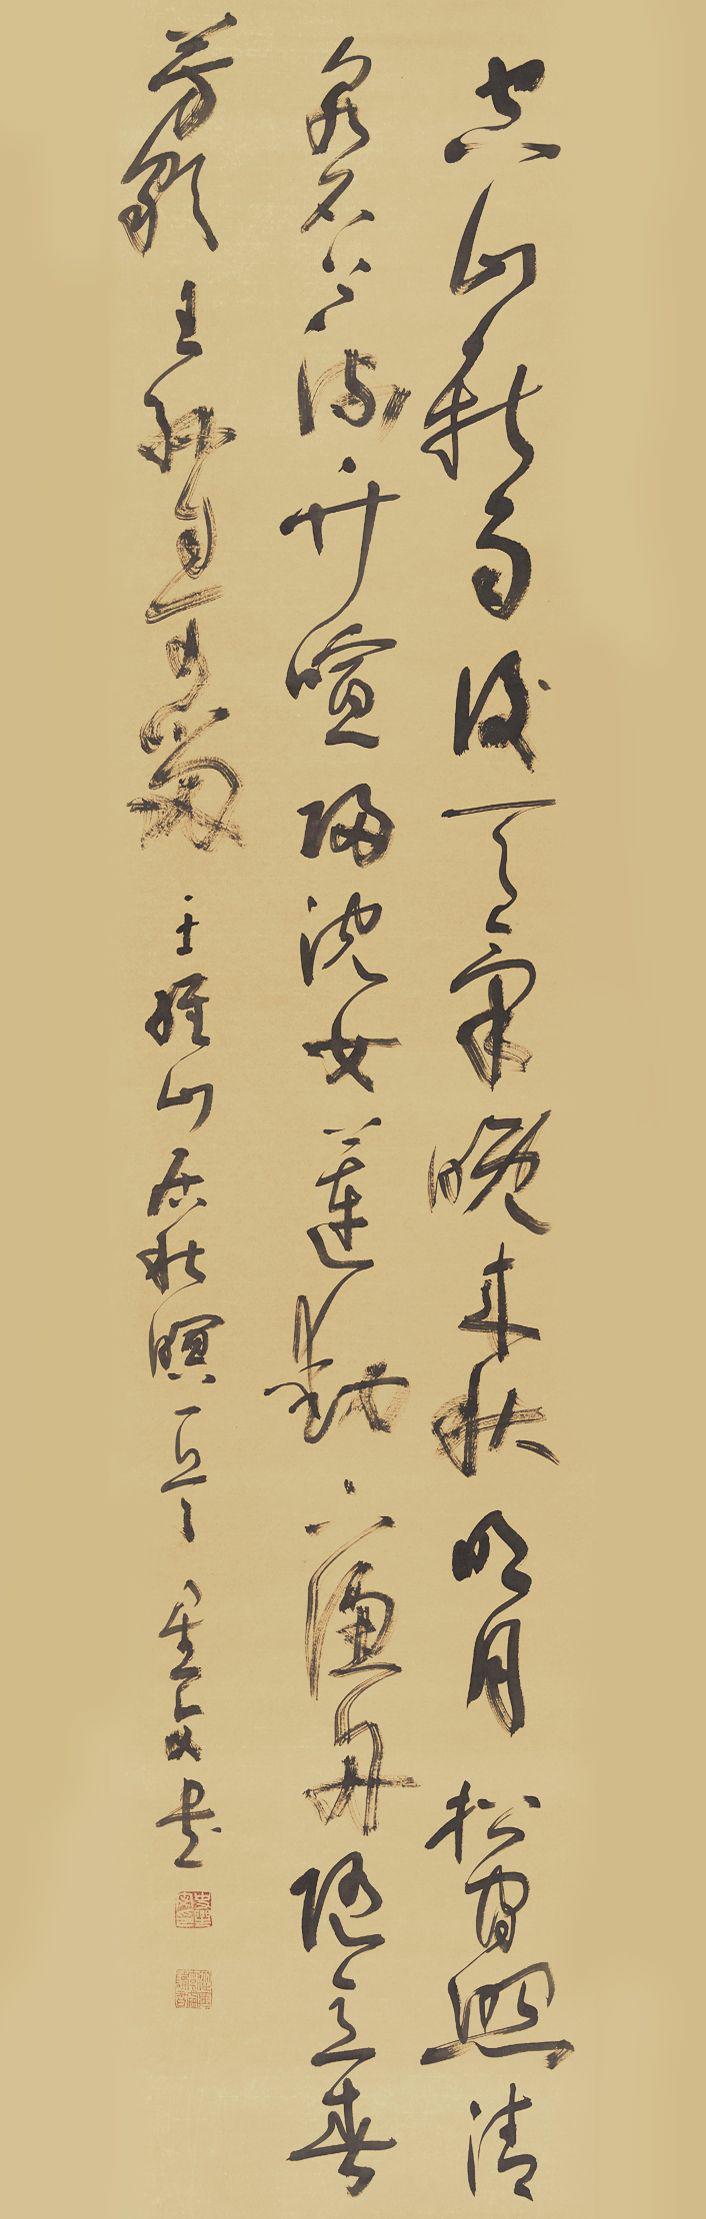 空山新雨後天氣晚來秋明月松間照清
泉石上流竹喧歸浣女蓮動下漁舟隨意春
芳歇王孫自可留 王維山居秋暝 書